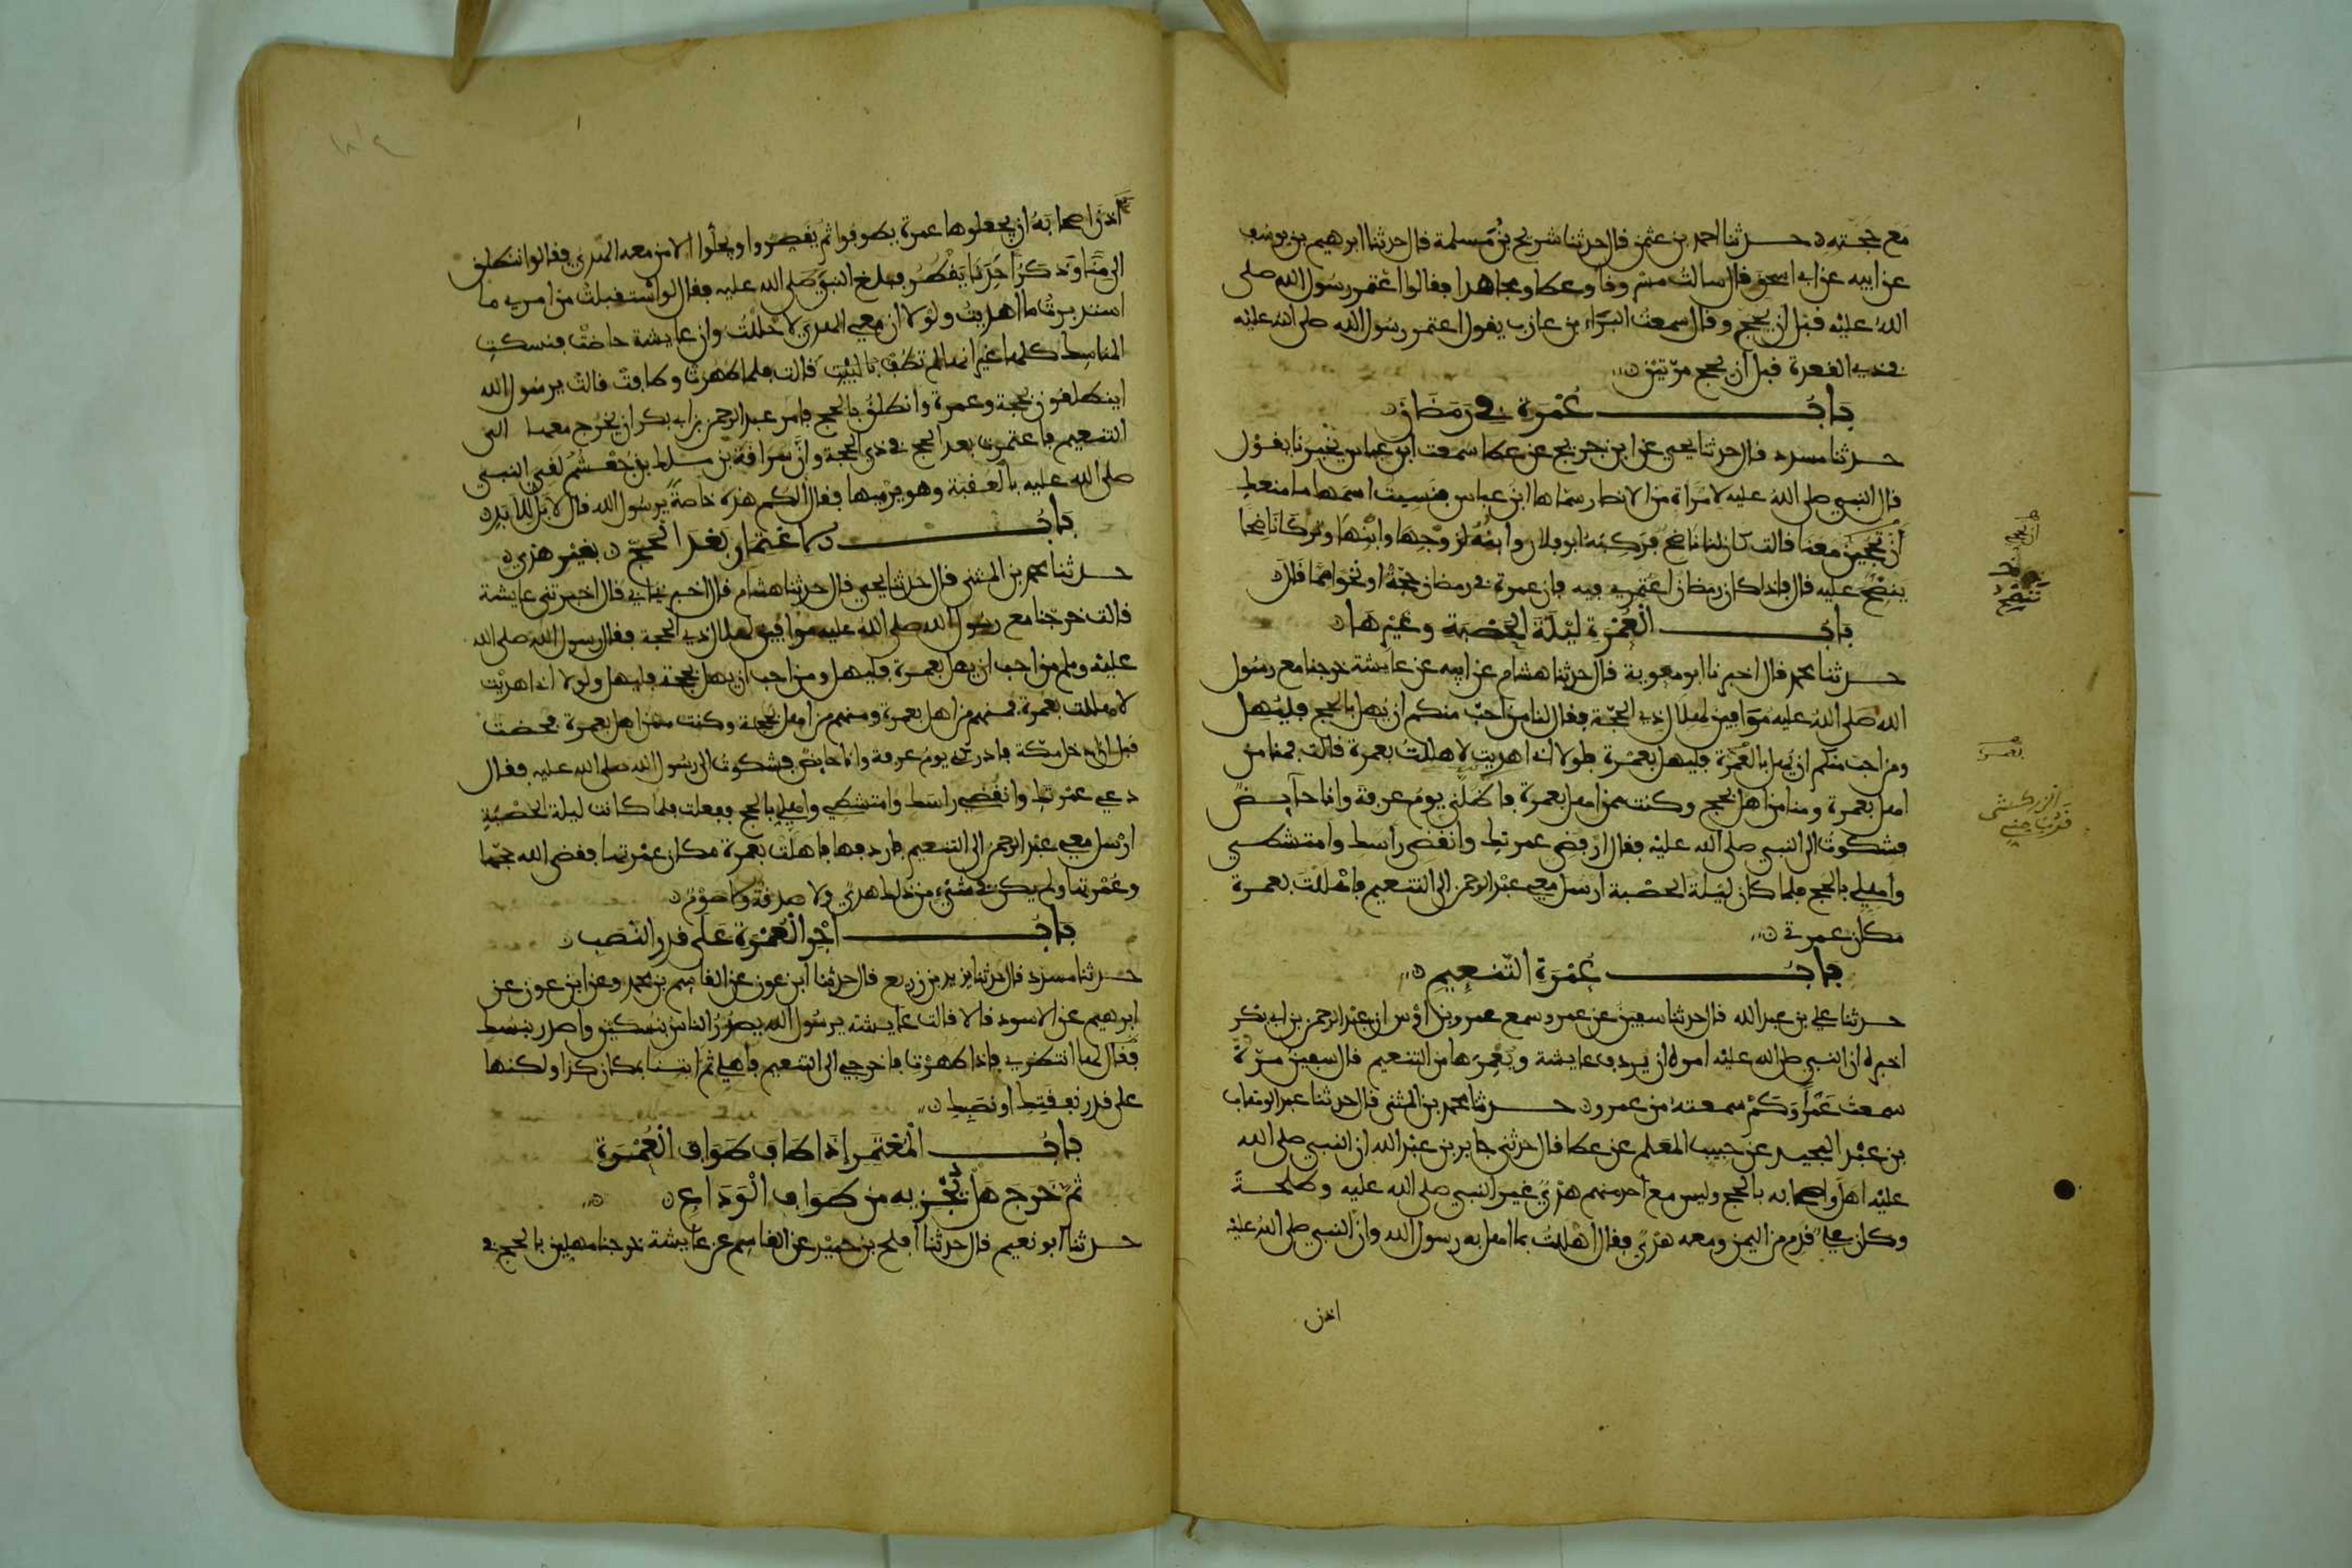 مع حجته حدثنا احمد بن عثمن قال حدثنا شريح بن مسلمة قال حدثنا ابرهيم بن يوسف
عن ابيه عن ابي اسحق قال سالت مسروقا وعطا ومجاهدا فقالوا اعتمر رسول الله صلى
الله عليه قبل ان يحج وقال سمعت البراء بن عازب يقول اعتمر رسول الله صلى الله عليه
في ذي القعدة قبل ان يحج مرتين
باب عمرة في رمضان
حدثنا مسدد قال حدثنا يحيى عن ابن جريج عن عطا سمعت ابن عباس يخبرنا يقول
قال النبي صلى الله عليه لامراة من الانصار سماها ابن عباس فنسيت اسمها ما منعك
أن تحجين معنا قالت كان لنا ناضح فركبه ابو فلان وابنه لزوجها وابنها وترك ناضحا
ينضح عليه قال فاذا كان رمضان اعتمري فيه فان عمرة في رمضان حجة او نحوا مما قال
باب العمرة ليلة الحصبة وغيرها
حدثنا محمد قال اخبرنا ابو معوية قال حدثنا هشام عن ابيه عن عايشة خرجنا مع رسول
الله صلى الله عليه موافين لهلال ذي الحجة فقال لنا من احب منكم ان يهل بالحج فليهل
ومن احب منكم ان يهل بالعمرة فليهل بعمرة فلولا اني اهديت لاهللت بعمرة قالت فمنا من
اهل بعمرة ومنا من اهل بحج وكنت ممن اهل بعمرة فاظلني يوم عرفة وانا حآيض
فشكوت الى النبي صلى الله عليه فقال ارفضي عمرتك وانقضي راسك وامتشطي
واهلي بالحج فلما كان ليلة الحصبة ارسل معي عبد الرحمن الى التنعيم فاهللت بعمرة
مكان عمرتي
باب عمرة التنعيم
حدثنا علي بن عبد الله قال حدثنا سفين عن عمرو سمع عمرو بن اوس ان عبد الرحمن بن ابي بكر
اخبره ان النبي صلى الله عليه امره ان يردف عايشة ويعمرها من التنعيم قال سفين مرة
سمعت عمرا وكم سمعته من عمرو حدثنا محمد بن المثنى قال حدثنا عبد الوهاب
بن عبد المجيد عن حبيب المعلم عن عطا قال حدثني جابر بن عبد الله ان النبي صلى الله
عليه اهل واصحابه بالحج وليس مع احد منهم هدي غير النبي صلى الله عليه وطلحة
وكان علي قدم من اليمن ومعه هدي فقال اهللت بما اهل به رسول الله وان النبي صلى الله عليه
اذن
ان تحجي
تنضح
بعمرة
الزركشي
اذن اصحابه ان يجعلوها عمرة يطوفوا ثم يقصروا ويحلوا الا من معه الهدي فقالوا ننطلق
الى منا وذكر احدنا يقطر فبلغ النبي صلى الله عليه فقال لو استقبلت من امري ما
استدبرت ما اهديت ولولا ان معي الهدي لاحللت وان عايشة حاضت فنسكت
المناسك كلها غير انها لم تطف بالبيت قالت فلما طهرت وطافت قالت يرسول الله
اينطلقون بحجة وعمرة وانطلق بالحج فامر عبد الرحمن بن ابي بكر ان يخرج معها الى
التنعيم فاعتمرت بعد الحج في ذي الحجة وان سراقة بن ملك بن جعشم لقي النبي
صلى الله عليه بالعقبة وهو يرميها فقال الكم هذه خاصة يرسول الله قال لا بل للابد
باب الاعتمار بعد الحج بغير هدي
حدثنا محمد بن المثنى قال حدثنا يحيى قال حدثنا هشام قال اخبرني ابي قال اخبرتني عايشة
قالت خرجنا مع رسول الله صلى الله عليه موافين لهلال ذي الحجة فقال رسول الله صلى الله
عليه وسلم من احب ان يهل بعمرة فليهل ومن احب ان يهل بحجة فليهل ولولا اني اهديت
لاهللت بعمرة فمنهم من اهل بعمرة ومنهم من اهل بحجة وكنت ممن اهل بعمرة فحضت
قبل ان ادخل مكة فادركني يوم عرفة وانا حايض فشكوت الى رسول الله صلى الله عليه فقال
دعي عمرتك وانقضي راسك وامتشطي واهلي بالحج ففعلت فلما كانت ليلة الحصبة
ارسل معي عبد الرحمن الى التنعيم فاردفها فاهلت بعمرة مكان عمرتها فقضى الله حجها
وعمرتها ولم يكن في شيء من ذلك هدي ولا صدقة ولا صوم
باب اجر العمرة على قدر النصب
حدثنا مسدد قال حدثنا يزيد بن زريع قال حدثنا ابن عون عن القاسم بن محمد وعن ابن عون عن
ابرهيم عن الاسود قالا قالت عايشة يرسول الله يصدر الناس بنسكين واصدر بنسك
فقال لها انتظري فاذا طهرت فاخرجي الى التنعيم فاهلي ثم ايتنا بمكان كذا ولكنها
على قدر نفقتك او نصبك
باب المعتمر إذا طاف طواف العمرة
ثم خرج هل يجزيه من طواف الوداع
حدثنا ابو نعيم قال حدثنا افلح بن حميد عن القاسم عن عايشة خرجنا مهلين بالحج في